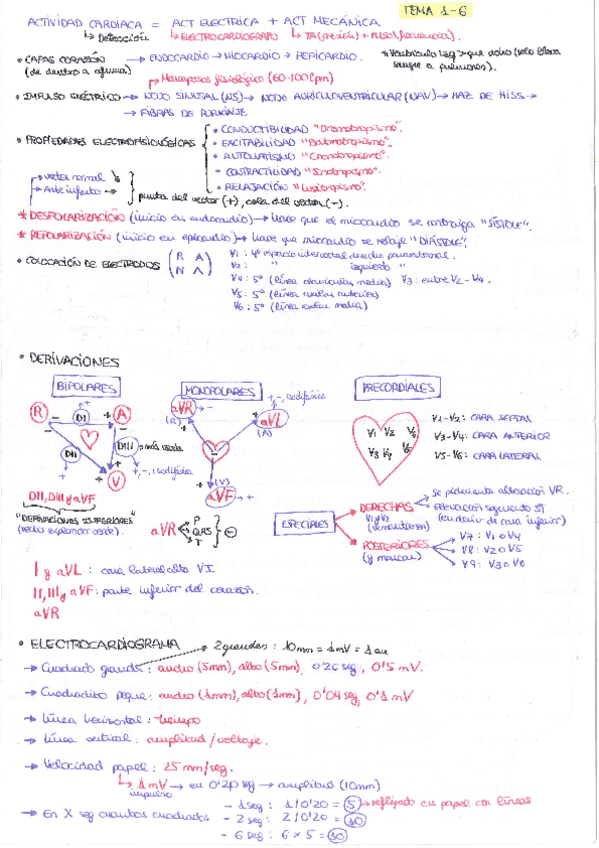 TEMA 1-6
ACTIVIDAD CARDIACA = ACT ELECTRICA + ACT MECÁNICA
↳ Detección ↳ ELECTROCARDIOGRAFO ↳ TA (presión) + Pulso (frecuencia).
• CAPAS CORAZÓN (de dentro a afuera) → ENDOCARDIO → MIOCARDIO → PERICARDIO.
* Ventrículo izq > que dcho (solo
sangre a pulmones).
↳ Marcapasos fisiológico (60-100 lpm)
• IMPULSO ELÉCTRICO → NODO SINUSAL (NS) → NODO AURICULOVENTRICULAR (NAV) → HAZ DE HISS →
→ FIBRAS DE PURKINJE
• PROPIEDADES ELECTROFISIOLÓGICAS
• CONDUCTIBILIDAD "Dromotropismo".
• EXCITABILIDAD "Batmotropismo".
• AUTOMATISMO "Cronotropismo".
• CONTRACTILIDAD "Inotropismo".
• RELAJACIÓN "Lusitropismo".
→ vector normal
→ Ante infarto →
punta del vector (+), cola del vector (-).
* DESPOLARIZACIÓN (inicio en endocardio) → hace que el miocardio se contraiga "SÍSTOLE".
* REPOLARIZACIÓN (inicio en epicardio) → hace que miocardio se relaje "DIÁSTOLE".
• COLOCACIÓN DE ELECTRODOS
R A
N A
V1: 4º espacio intercostal derecho paraesternal.
V2: " izquierdo "
V4: 5º (línea clavicular media) V3: entre V2-V4.
V5: 5º (línea axilar anterior)
V6: 5º (línea axilar media)
• DERIVACIONES
BIPOLARES
MONOPOLARES
PRECORDIALES
R A DI + -
DII DIII → más usada
V +
+, -, isodifásica
aVR → -
(R)
aVL
(A)
+, -, isodifásica
(V)
aVF → +
V1 V2 V6
V3 V4 V5
V1-V2: CARA SEPTAL
V3-V4: CARA ANTERIOR
V5-V6: CARA LATERAL
DII, DIII y aVF
"DERIVACIONES INFERIORES"
aVR P QRS T -
ESPECIALES
DERECHAS
V1 y V2
(se mantienen)
→ se
alteración VR.
→ elevación segmento ST
(en deriv de cara inferior)
POSTERIORES
(y marcar)
V7: V1 o V4
V8: V2 o V5
V9: V3 o V6
I y aVL: cara lateral alto VI
II, III y aVF: parte inferior del corazón.
aVR
• ELECTROCARDIOGRAMA → 2 grandes: 10mm = 1mV = 1cm
→ Cuadrado grande: ancho (5mm), alto (5mm), 0'20 seg, 0'5 mV.
→ Cuadradito peque: ancho (1mm), alto (1mm), 0'04 seg, 0'1 mV
→ Línea horizontal: tiempo
→ Línea vertical: amplitud/voltaje.
→ Velocidad papel: 25 mm/seg.
↳ 1 mV → en 0'20 seg → amplitud (10mm)
impulso
→ En X seg cuantos cuadrados
- 1 seg: 1/0'20 = 5 → reflejado en papel con líneas
- 2 seg: 2/0'20 = 10
- 6 seg: 6 x 5 = 30